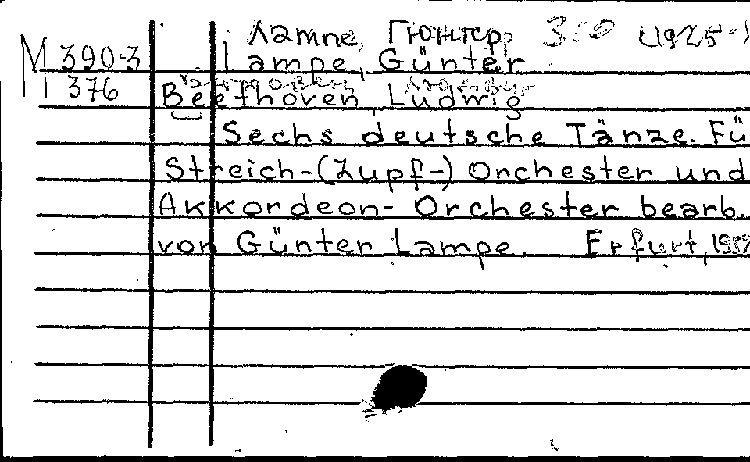 Лампе, Гюнтер
М 390-3 Lampe, Günter
376 Beethoven, Ludwig
Sechs deutsche Tänze. Fü
Streich-(Zupf-) Orchester und
Akkordeon- Orchester bearb.
von Günter Lampe. Erfurt,